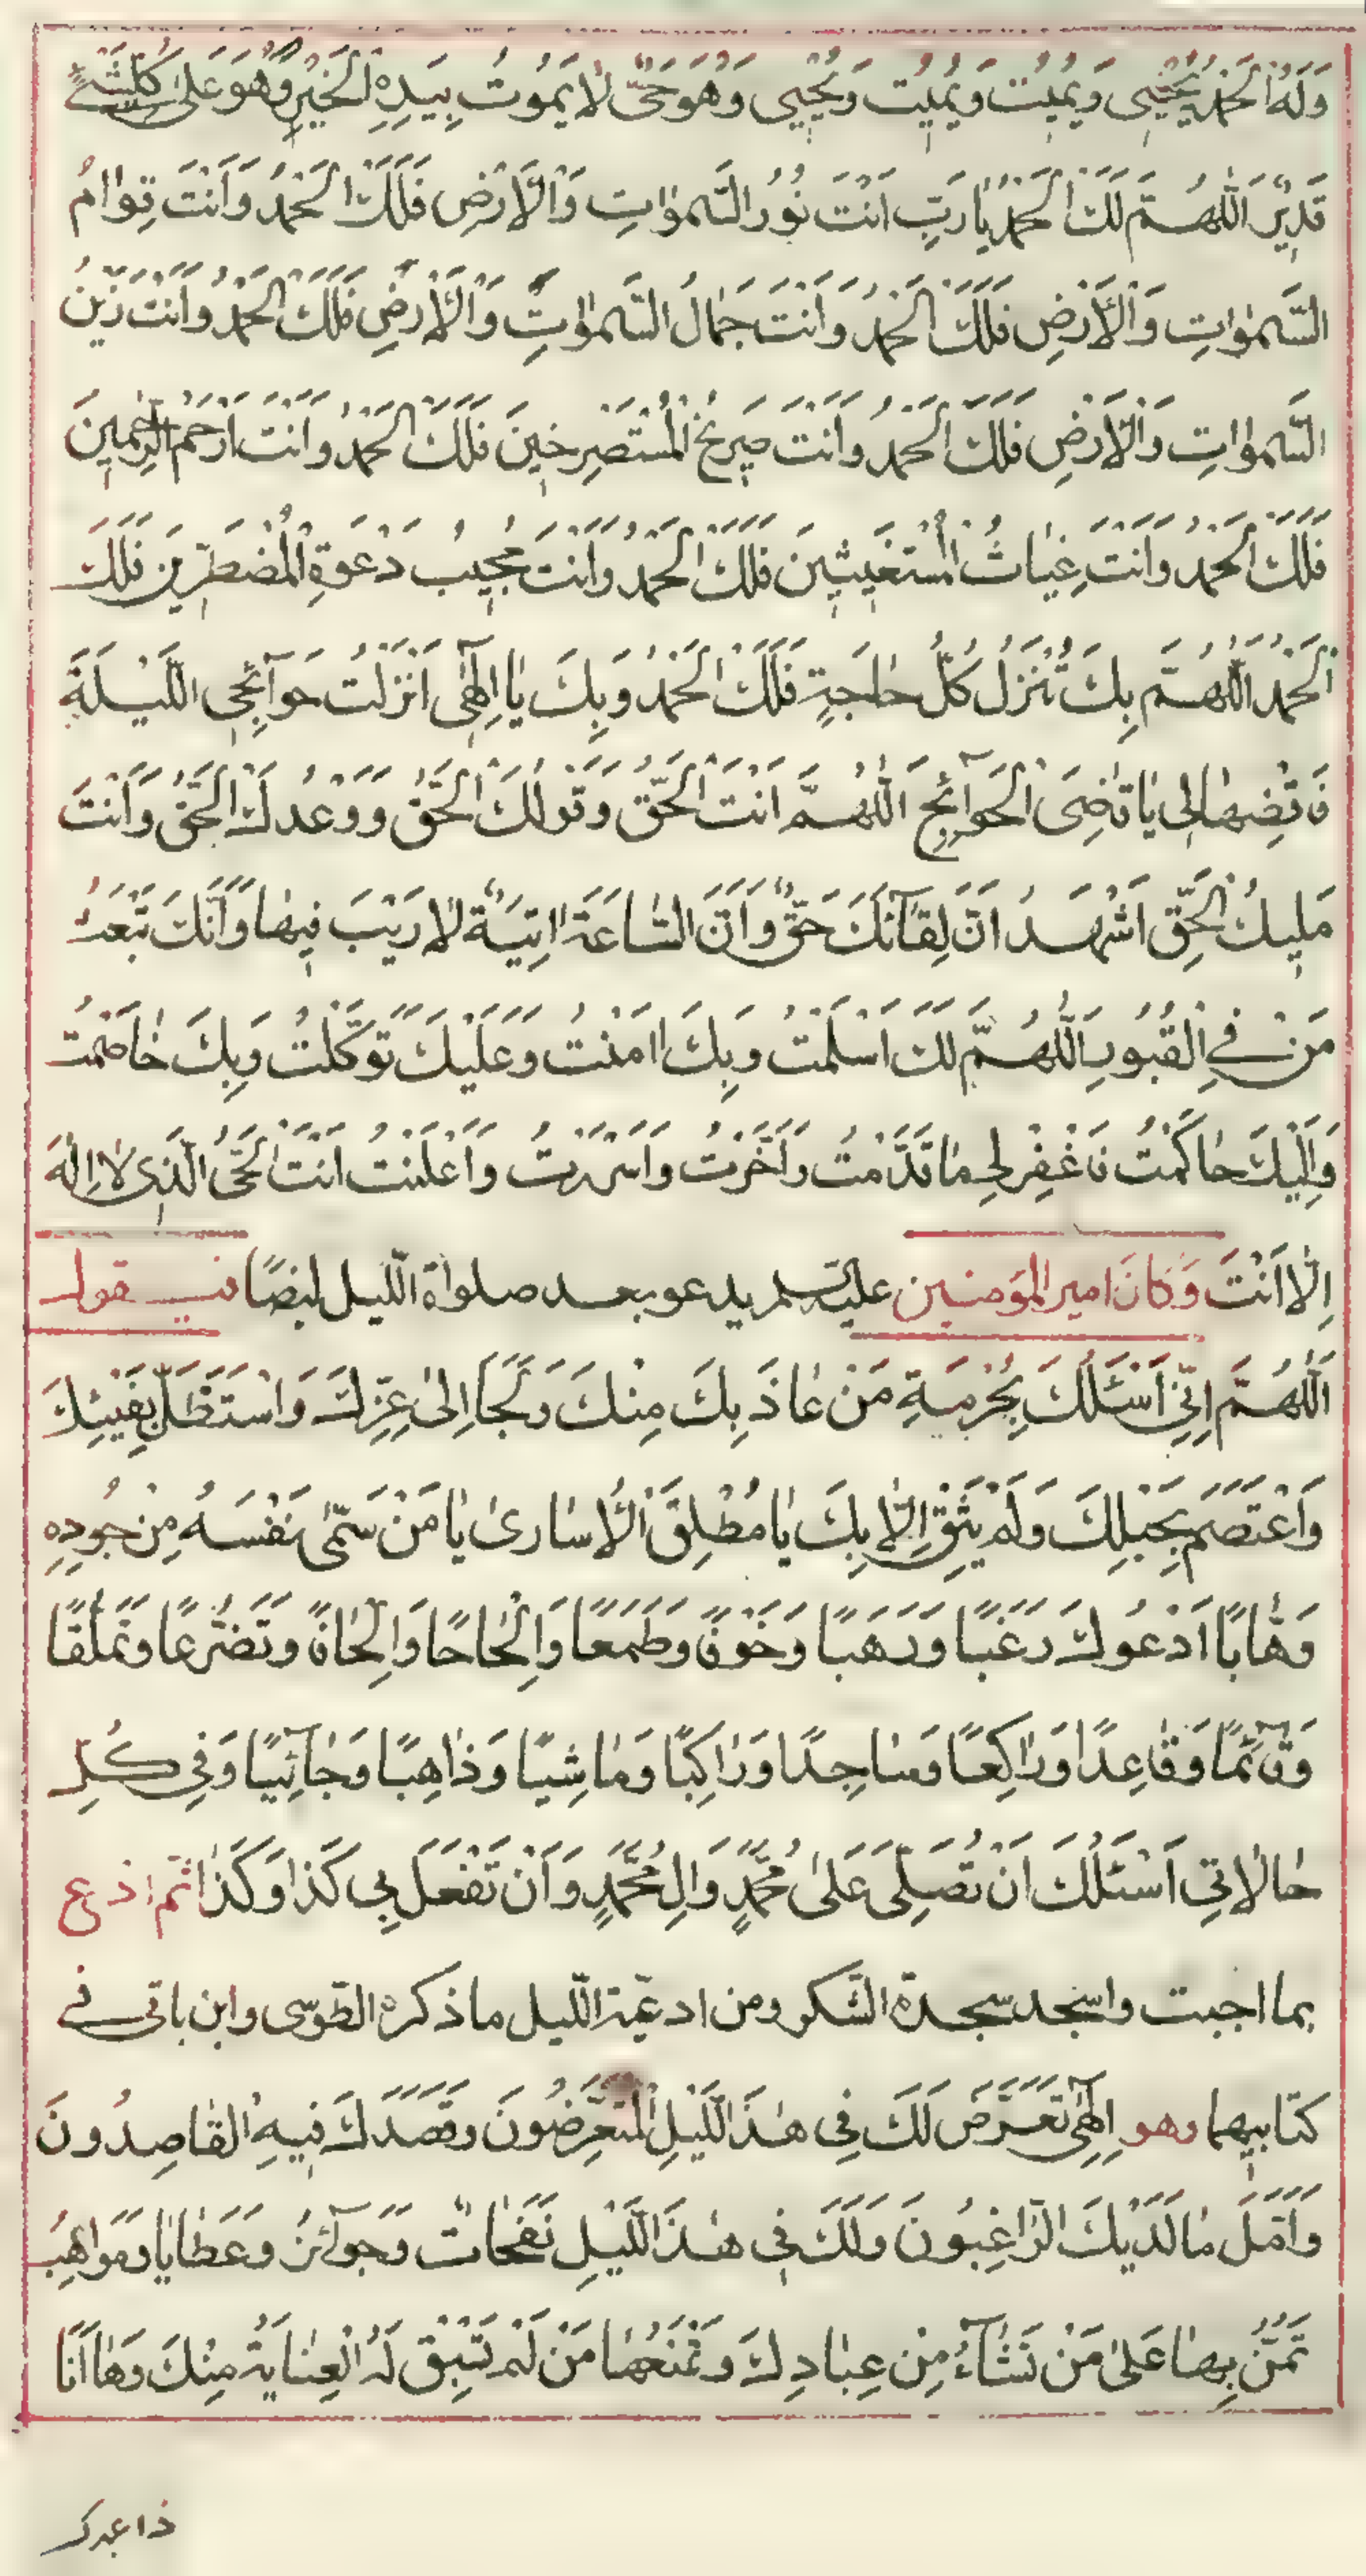 وَلَهُ الْحَمْدُ يُحْيِي وَيُمِيتُ وَيُمِيتُ وَيُحْيِي وَهُوَ حَيٌّ لَا يَمُوتُ بِيَدِهِ الْخَيْرِ وَهُوَ عَلَىٰ كُلِّ شَيْءٍ
قَدِيرٌ اَللّٰهُمَّ لَكَ الْحَمْدُ يَا رَبِّ اَنْتَ نُورُ السَّمٰوَاتِ وَالْاَرْضِ فَلَكَ الْحَمْدُ وَاَنْتَ قِوَامُ
السَّمٰوَاتِ وَالْاَرْضِ فَلَكَ الْحَمْدُ وَاَنْتَ جَمَالُ السَّمٰوَاتِ وَالْاَرْضِ فَلَكَ الْحَمْدُ وَاَنْتَ زَيْنُ
السَّمٰوَاتِ وَالْاَرْضِ فَلَكَ الْحَمْدُ وَاَنْتَ صَرِيخُ الْمُسْتَصْرِخِينَ فَلَكَ الْحَمْدُ وَاَنْتَ اَرْحَمُ الرَّاحِمِينَ
فَلَكَ الْحَمْدُ وَاَنْتَ غِيَاثُ الْمُسْتَغِيثِينَ فَلَكَ الْحَمْدُ وَاَنْتَ مُجِيبُ دَعْوَةِ الْمُضْطَرِّينَ فَلَكَ
اَلْحَمْدُ اَللّٰهُمَّ بِكَ تُنْزَلُ كُلُّ حَاجَةٍ فَلَكَ الْحَمْدُ وَبِكَ يَا اِلٰهِي اَنْزَلْتُ حَوَآئِجِي اللَّيْلَةَ
فَاقْضِهَا لِي يَا قَاضِيَ الْحَوَآئِجِ اَللّٰهُمَّ اَنْتَ الْحَقُّ وَقَوْلُكَ الْحَقُّ وَوَعْدُكَ الْحَقُّ وَاَنْتَ
مَلِيكُ الْحَقِّ اَشْهَدُ اَنَّ لِقَآئَكَ حَقٌّ وَاَنَّ السَّاعَةَ اٰتِيَةٌ لَا رَيْبَ فِيهَا وَاَنَّكَ تَبْعَثُ
مَنْ فِي الْقُبُورِ اَللّٰهُمَّ لَكَ اَسْلَمْتُ وَبِكَ اٰمَنْتُ وَعَلَيْكَ تَوَكَّلْتُ وَبِكَ خَاصَمْتُ
وَاِلَيْكَ حَاكَمْتُ فَاغْفِرْ لِي مَا قَدَّمْتُ وَاَخَّرْتُ وَاَسْرَرْتُ وَاَعْلَنْتُ اَنْتَ الْحَيُّ الَّذِي لَا اِلٰهَ
اِلَّا اَنْتَ وَكَانَ امير المؤمنين عليه السلم يدعو بعد صلوة اللّيل ايضًا فيقول
اَللّٰهُمَّ اِنِّي اَسْئَلُكَ بِحُرْمَةِ مَنْ عَاذَ بِكَ مِنْكَ وَلَجَاَ اِلىٰ عِزِّكَ وَاسْتَظَلَّ بِفَيْئِكَ
وَاعْتَصَمَ بِحَبْلِكَ وَلَمْ يَثِقْ اِلَّا بِكَ يَا مُطْلِقَ الْاُسَارىٰ يَا مَنْ سَمّىٰ نَفْسَهُ مِنْ جُودِهِ
وَهَّابًا اَدْعُوكَ رَغَبًا وَرَهَبًا وَخَوْفًا وَطَمَعًا وَاِلْحَاحًا وَاِلْحَافًا وَتَضَرُّعًا وَتَمَلُّقًا
وَقَآئِمًا وَقَاعِدًا وَرَاكِعًا وَسَاجِدًا وَرَاكِبًا وَمَاشِيًا وَذَاهِبًا وَجَآئِيًا وَفِي كُلِّ
حَالَاتِي اَسْئَلُكَ اَنْ تُصَلِّيَ عَلىٰ مُحَمَّدٍ وَاٰلِ مُحَمَّدٍ وَاَنْ تَفْعَلَ بِي كَذَا وَكَذَا ثم ادع
بما احببت واسجد سجدة الشكر ومن ادعية اللّيل ما ذكره الطّوسي وابن باقي في
كتابيهما وهو اِلٰهِي تَعَرَّضَ لَكَ فِي هٰذَا اللَّيْلِ الْمُتَعَرِّضُونَ وَقَصَدَكَ فِيهِ الْقَاصِدُونَ
وَاَمَّلَ مَا لَدَيْكَ الرَّاغِبُونَ وَلَكَ فِي هٰذَا اللَّيْلِ نَفَحَاتٌ وَجَوَآئِزُ وَعَطَايَا وَمَوَاهِبُ
تَمُنُّ بِهَا عَلىٰ مَنْ تَشَآءُ مِنْ عِبَادِكَ وَتَمْنَعُهَا مَنْ لَمْ تَسْبِقْ لَهُ الْعِنَايَةُ مِنْكَ وَهَا اَنَا
ذا عبدك